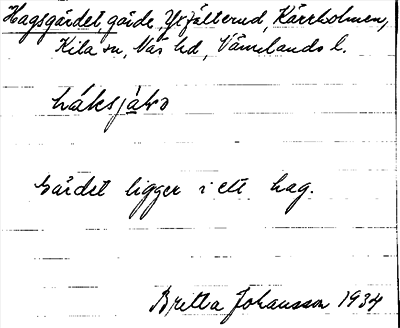 Hagsgärdet, gärde, Yt­fälterud, Kärrholmen,
Kila sn, Näs hd, Värmlands l.
Gärdet ligger i ett hag.
Britta Johansson 1934